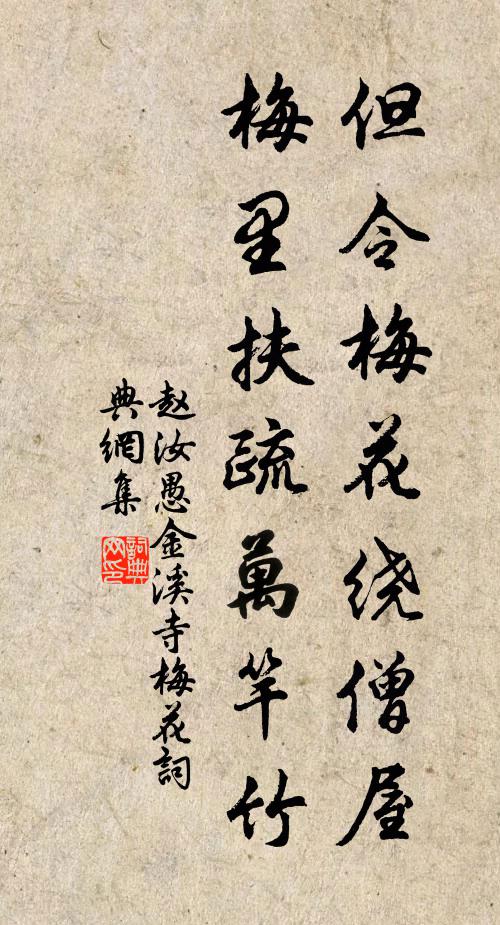 但令梅花绕僧屋
梅里扶疏萬竿竹
赵汝愚金溪寺梅花詞
典網集
詞典
网印